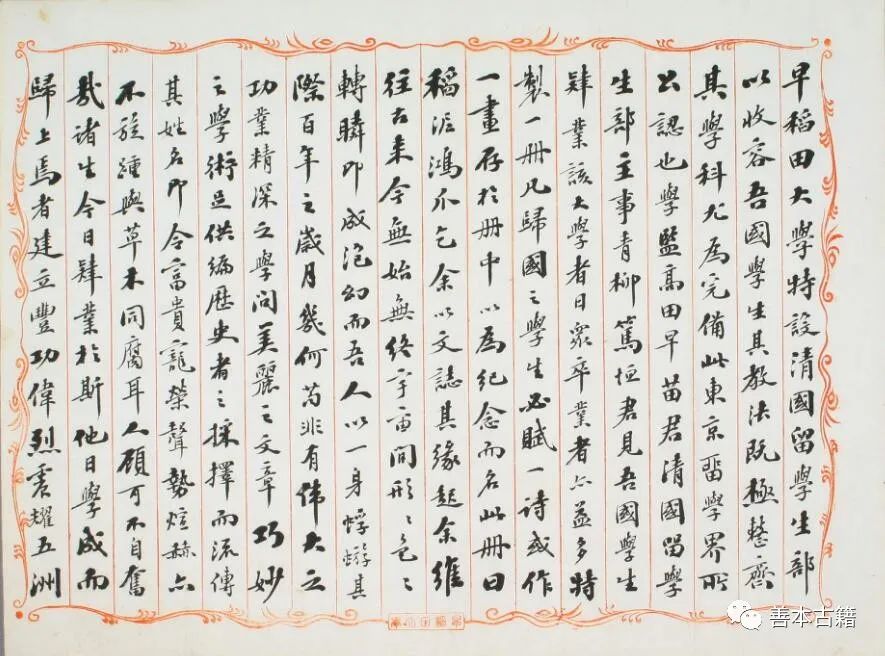 早稻田大學特設清國留學生部
以收容吾國學生其教法既極整齊
其學科尤為完備此東京留學界所
公認也學監高田早苗君清國留學
生部主事青柳篤恒君見吾國學生
肄業該大學者日眾卒業者亦益多特
製一冊凡歸國之學生必賦一詩或作
一畫存於冊中以為紀念而名此冊曰
稻泥鴻爪乞余以文誌其緣起余維
往古來今無始無終宇宙間形〻色〻
轉瞬即成泡幻而吾人以一身蜉蝣其
際百年之歲月幾何苟非有偉大之
功業精深之學問美麗之文章巧妙
之學術足供編歷史者之採擇而流傳
其姓名即令富貴寵榮聲勢煊赫亦
不旋踵與草木同腐耳人顧可不自奮
哉諸生今日肄業於斯他日學成而
歸上焉者建立豐功偉烈震耀五洲
善本古籍